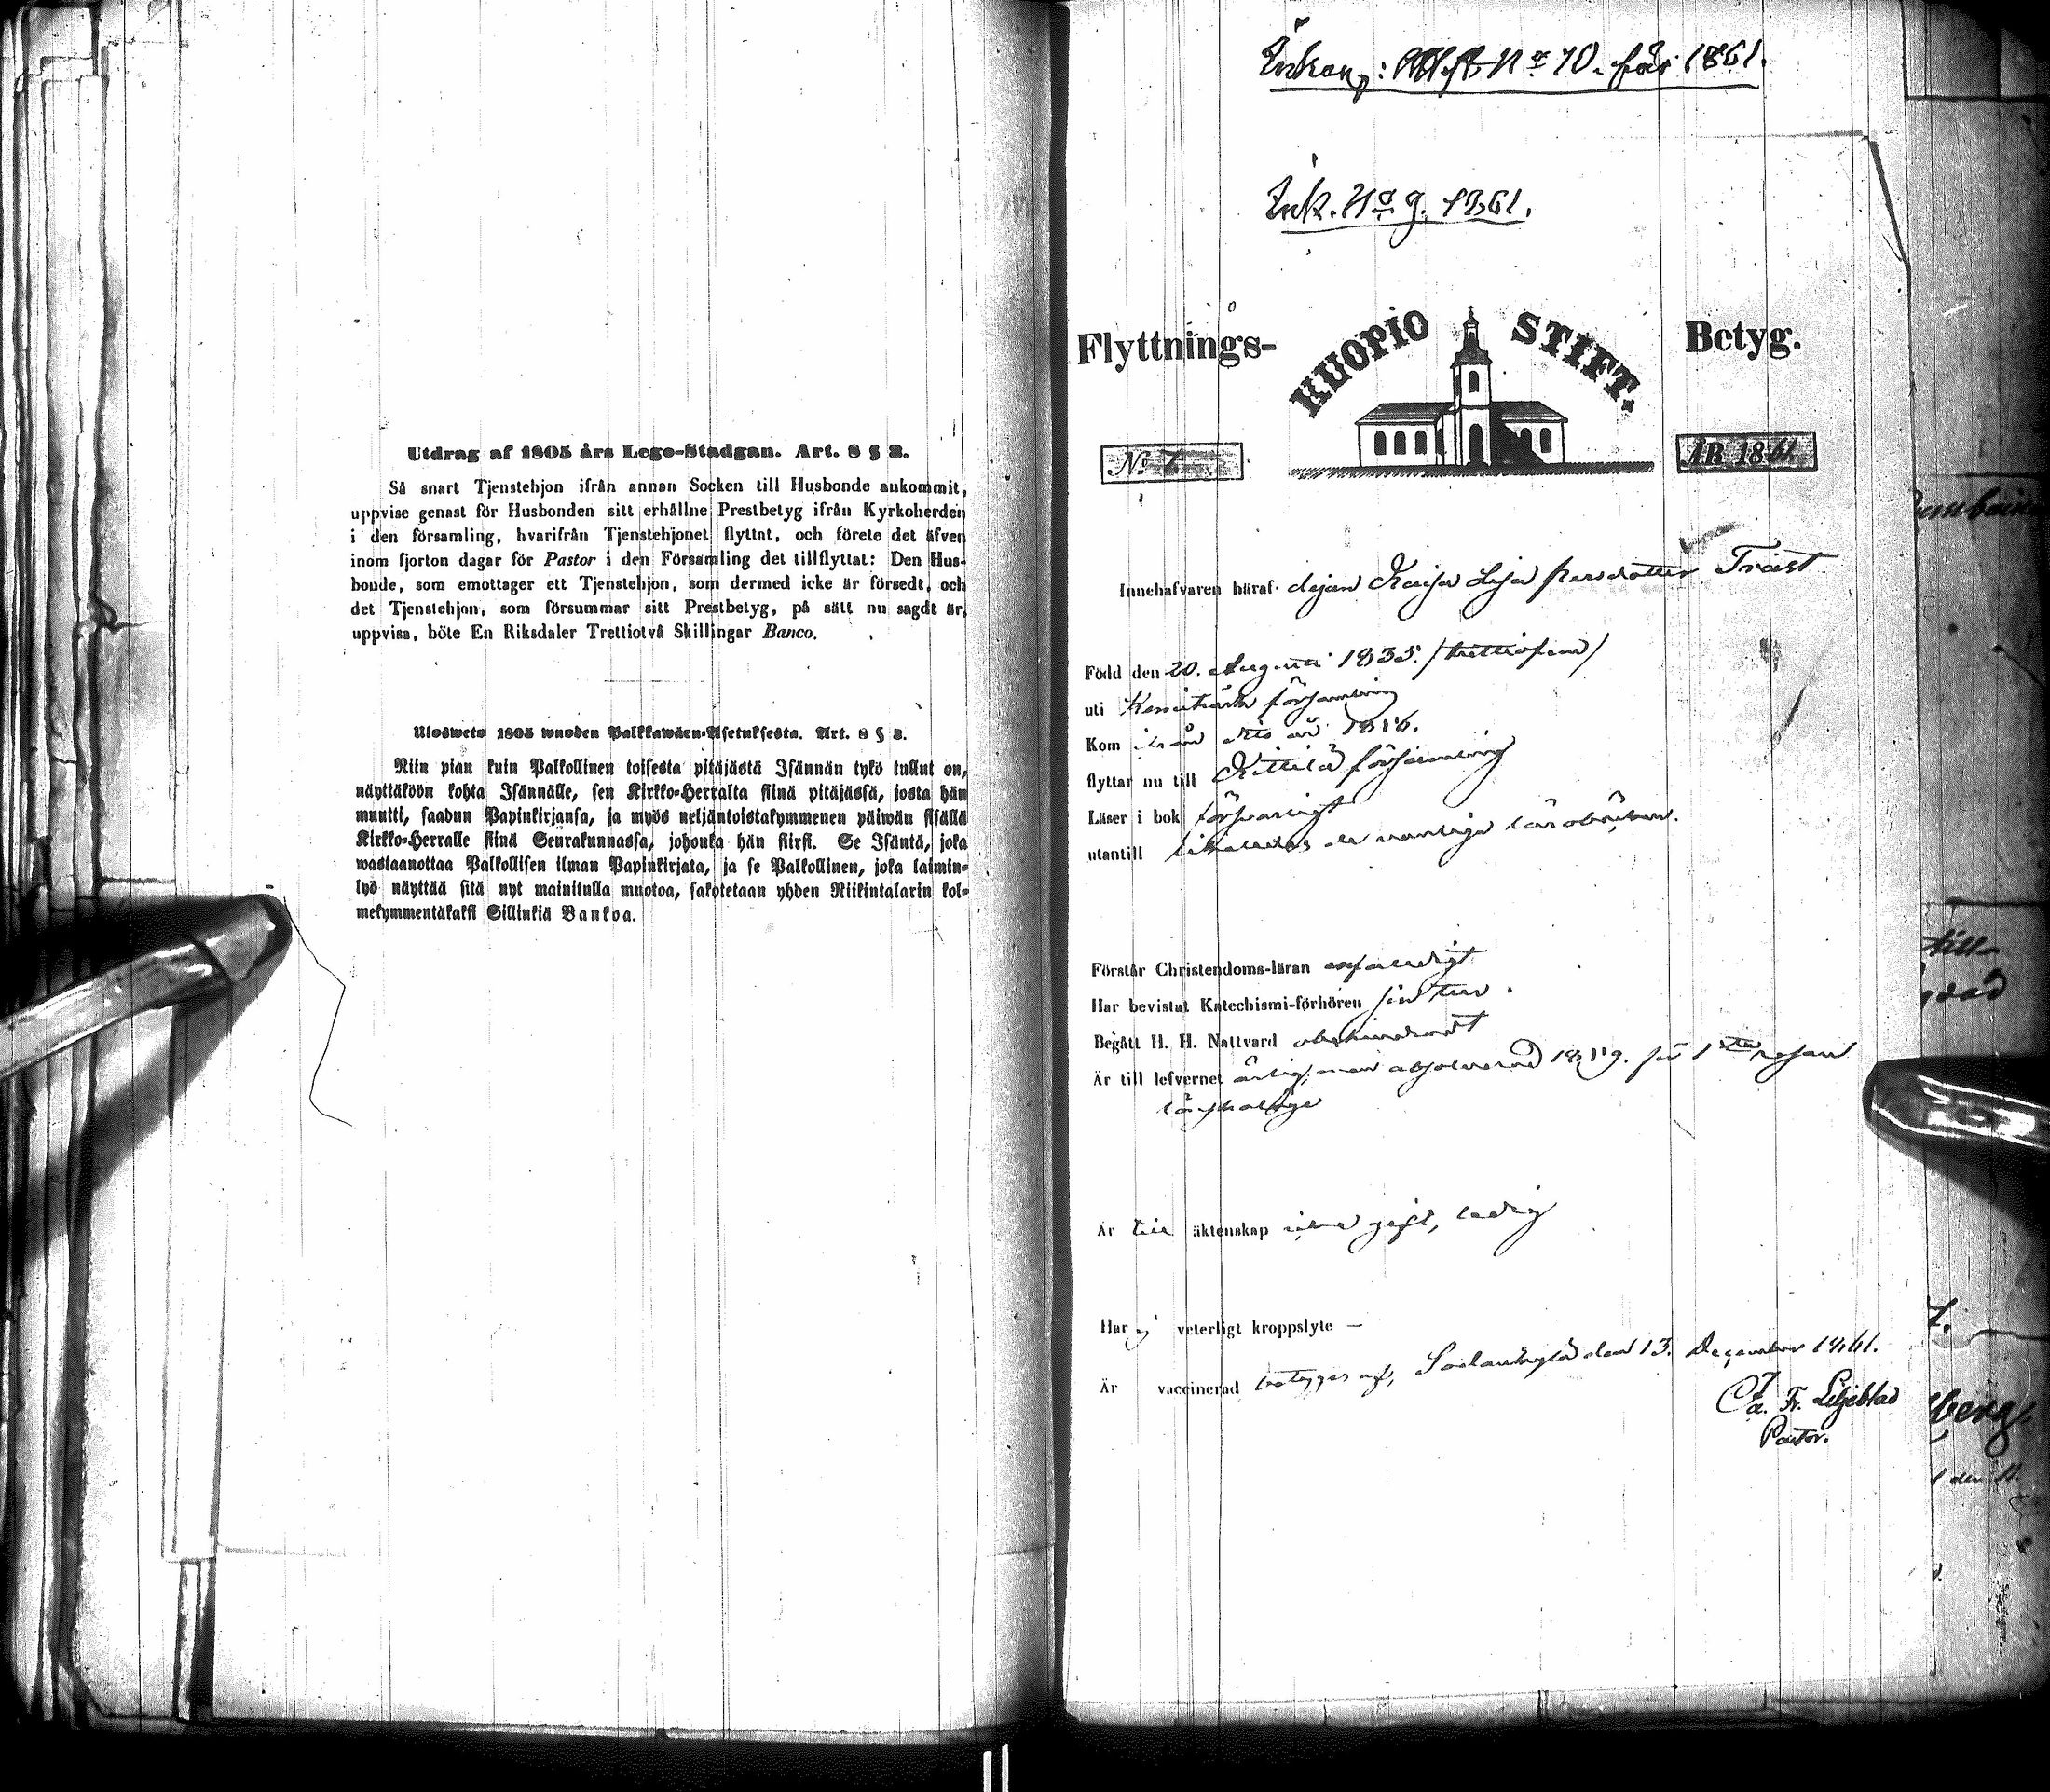 Utdrag af 1805 års Lego-Stadgan. Art. 8 § 3.
Så snart Tjenstehjon ifrån annan Socken till Husbonde ankommit,
uppvise genast för Husbonden sitt erhållne Prestbetyg ifrån Kyrkoherden
i den församling, hvarifrån Tjenstehjonet flyttat, och förete det äfven
inom fjorton dagar för Pastor i den Församling det tillflyttat: Den Hus-
bonde, som emottager ett Tjenstehjon, som dermed icke är försedt, och
det Tjenstehjon, som försummar sitt Prestbetyg, på sätt nu sagdt är,
uppvisa, böte En Riksdaler Trettiotvå Skillingar Banco.
Ulosweto 1805 wuoden Palkkawäen-Asetuksesta. Art. 8 § 3.
Niin pian kuin Palkollinen toisesta pitäjästä Isännän tykö tullut on,
näyttäköön kohta Isännälle, sen Kirkko-Herralta siinä pitäjässä, josta hän
muutti, saadun Papinkirjansa, ja myös neljäntoistakymmenen päiwän sisällä
Kirkko-Herralle siinä Seurakunnassa, johonka hän siirsi. Se Isäntä, joka
wastaanottaa Palkollisen ilman Papinkirjata, ja se Palkollinen, joka laimin-
lyö näyttää sitä nyt mainitulla muotoa, sakotetaan yhden Riikintalarin kol-
mekymmentäkaksi Sillinkiä Bankoa.
No 10. för 1861.
Ink. No 9. 1861.
Flyttnings- KUOPIO STIFT. Betyg.
No ÅR 1861
Innehafvaren häraf Kaisa Lisa Persdotter Träst
Född den 20. Augusti 1835. /trettiofem/
uti Kemiträsk församling
Kom
flyttar nu till Kittilä församling
Läser i bok försvarligt
utantill
Förstår Christendoms-läran enfaldigt
Har bevistat Katechismi-förhören
Begått H. H. Nattvard obehindradt
Är till lefvernet ärlig, men absolverad för 1sta resan
lönskaläge
Är till äktenskap icke gift, ledig
Har ej veterligt kroppslyte —
Är vaccinerad betygas af, Sodankylä den 13. December 1861.
Fr. Liljeblad
Pastor.